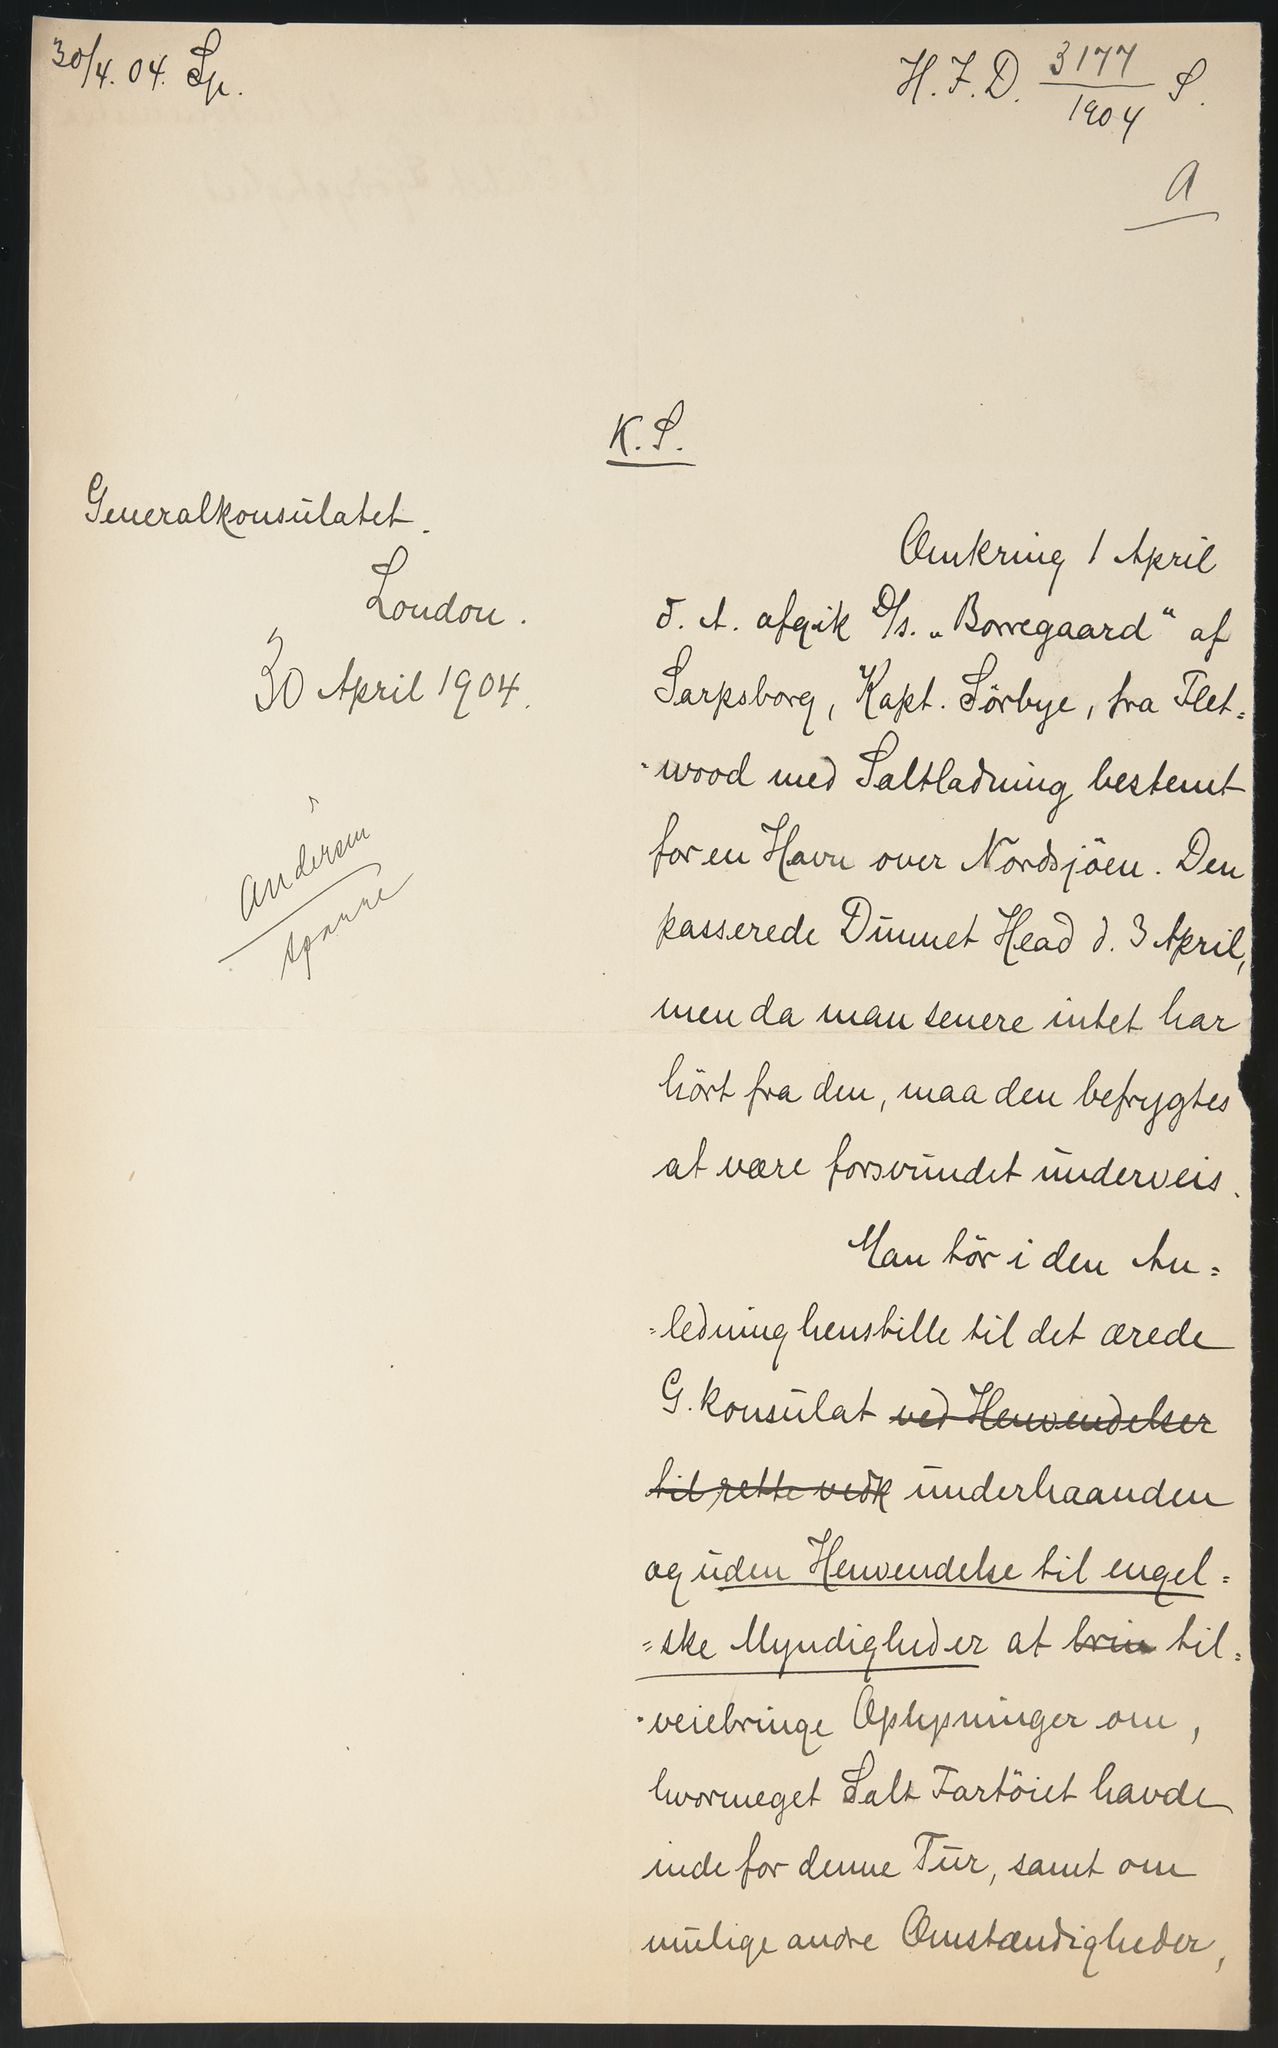 30/4. 04. Sp.
H. J. D. 3177/1904 S.
A
K. S.
Generalkonsulatet.
London.
30 April 1904.
Andersen
Omkring 1 April
d. A. afgik D/s. „Borregaard“ af
Sarpsborg, Kapt. Sörbye, fra Flet=
=wood med Saltladning bestemt
for en Havn over Nordsjöen. Den
passerede Dunnet Head d. 3 April,
men da man senere intet har
hört fra den, maa den befrygtes
at være forsvundet underveis.
Man tör i den An=
=ledning henstille til det ærede
G. konsulat ved Henvendelser
til rette vedk underhaanden
og uden Henvendelse til engel=
=ske Myndigheder at brin til=
=veiebringe Oplysninger om,
hvormeget Salt Fartöiet havde
inde for denne Tur, samt om
mulige andre Omstændigheder,